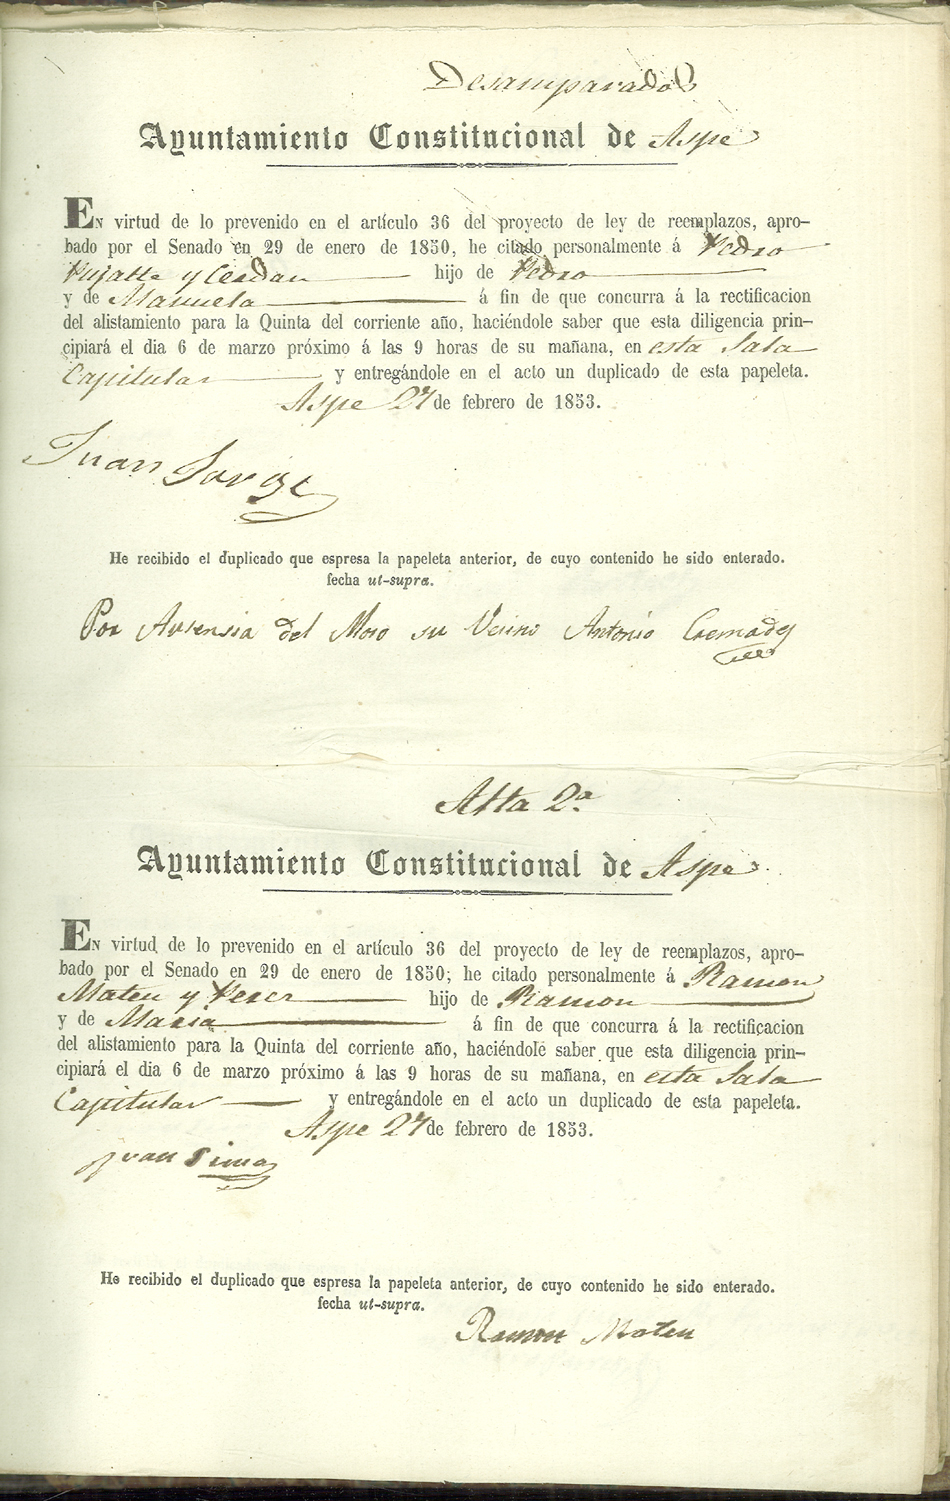 Desamparados
Ayuntamiento Constitucional de Aspe
EN virtud de lo prevenido en el artículo 36 del proyecto de ley de reemplazos, apro-
bado por el Senado en 29 de enero de 1850, he citado personalmente á Pedro
Pujalte y Cerdan hijo de Pedro
y de Manuela á fin de que concurra á la rectificacion
del alistamiento para la Quinta del corriente año, haciéndole saber que esta diligencia prin-
cipiará el dia 6 de marzo próximo á las 9 horas de su mañana, en esta Sala
Capitular y entregándole en el acto un duplicado de esta papeleta.
Aspe 27 de febrero de 1853.
Juan
He recibido el duplicado que espresa la papeleta anterior, de cuyo contenido he sido enterado.
fecha ut-supra.
Por Ausensia del Moso su Vesino Antonio Cremades
Alta 2a
Ayuntamiento Constitucional de Aspe
EN virtud de lo prevenido en el artículo 36 del proyecto de ley de reemplazos, apro-
bado por el Senado en 29 de enero de 1850; he citado personalmente á Ramon
Mateu y Perez hijo de Ramon
y de Maria á fin de que concurra á la rectificacion
del alistamiento para la Quinta del corriente año, haciéndole saber que esta diligencia prin-
cipiará el dia 6 de marzo próximo á las 9 horas de su mañana, en esta Sala
Capitular y entregándole en el acto un duplicado de esta papeleta.
Aspe 27 de febrero de 1853.
Juan
He recibido el duplicado que espresa la papeleta anterior, de cuyo contenido he sido enterado.
fecha ut-supra.
Ramon Mateu